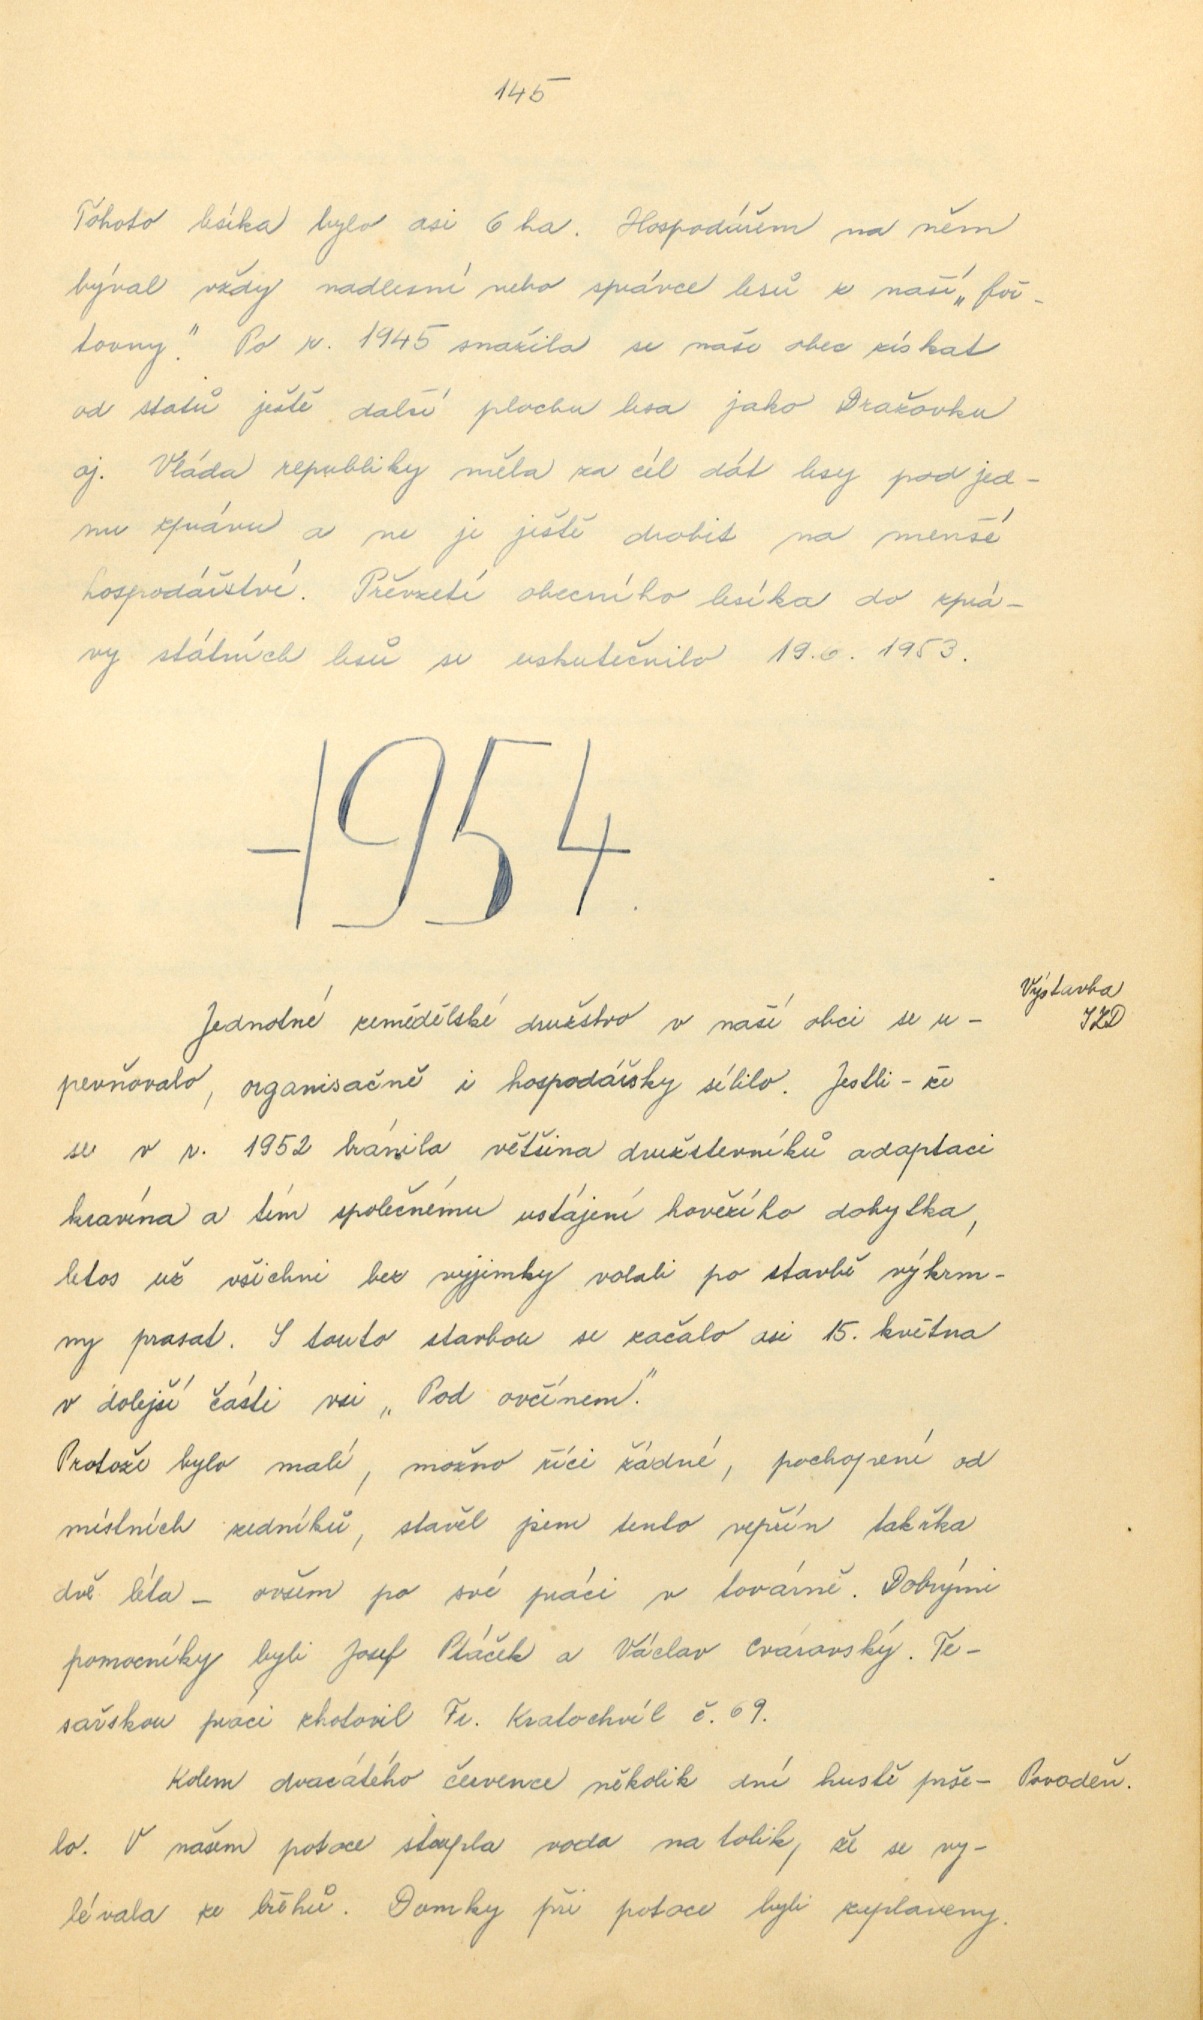 145
Tohoto lesíka bylo asi 6 ha. Hospodářem na něm
býval vždy nadlesní nebo správce lesů z naší „foř-
tovny." Po r. 1945 snažila se naše obec získat
od statů ještě další plochu lesa jako Dražovku
oj. Vláda republiky měla za cíl dát lesy pod jed-
nu zprávu a ne je ještě drobit na menší
hospodářství. Převzetí obecního lesíka do zprá-
vy státních lesů se uskutečnilo 19.6. 1953.
1954.
Výstavba
JZD
Jednotné zemědělské družstvo v naší obci se u-
pevňovalo, organisačně i hospodářsky sílilo. Jestli-že
se v r. 1952 bránila většina družsterníků adaptaci
kravína a tím společnému ustájení hovězího dobytka,
letos už všichni bez vyjimky volali po stavbě výkrm-
ny prasat. S touto stavbou se začalo asi 15. května
v dolejší části vsi „Pod ovčínem."
Protože bylo malé, možno říci žádné, pochopení od
místních zedníků, stavěl jsem tento vepřín takřka
dvě léta - ovšem po své práci v továrně. Dobrými
pomocníky byli Josef Ptáček a Václav Cvaravský. Te-
sařskou práci zhotovil Fr. Kratochvíl č. 69.
Kolem dvacátého července několik dní hustě prše- Povodeň.
lo. V našem potoce stoupla voda na tolik, že se vy-
lévala ze břehů. Domky při potoce byli zaplaveny.